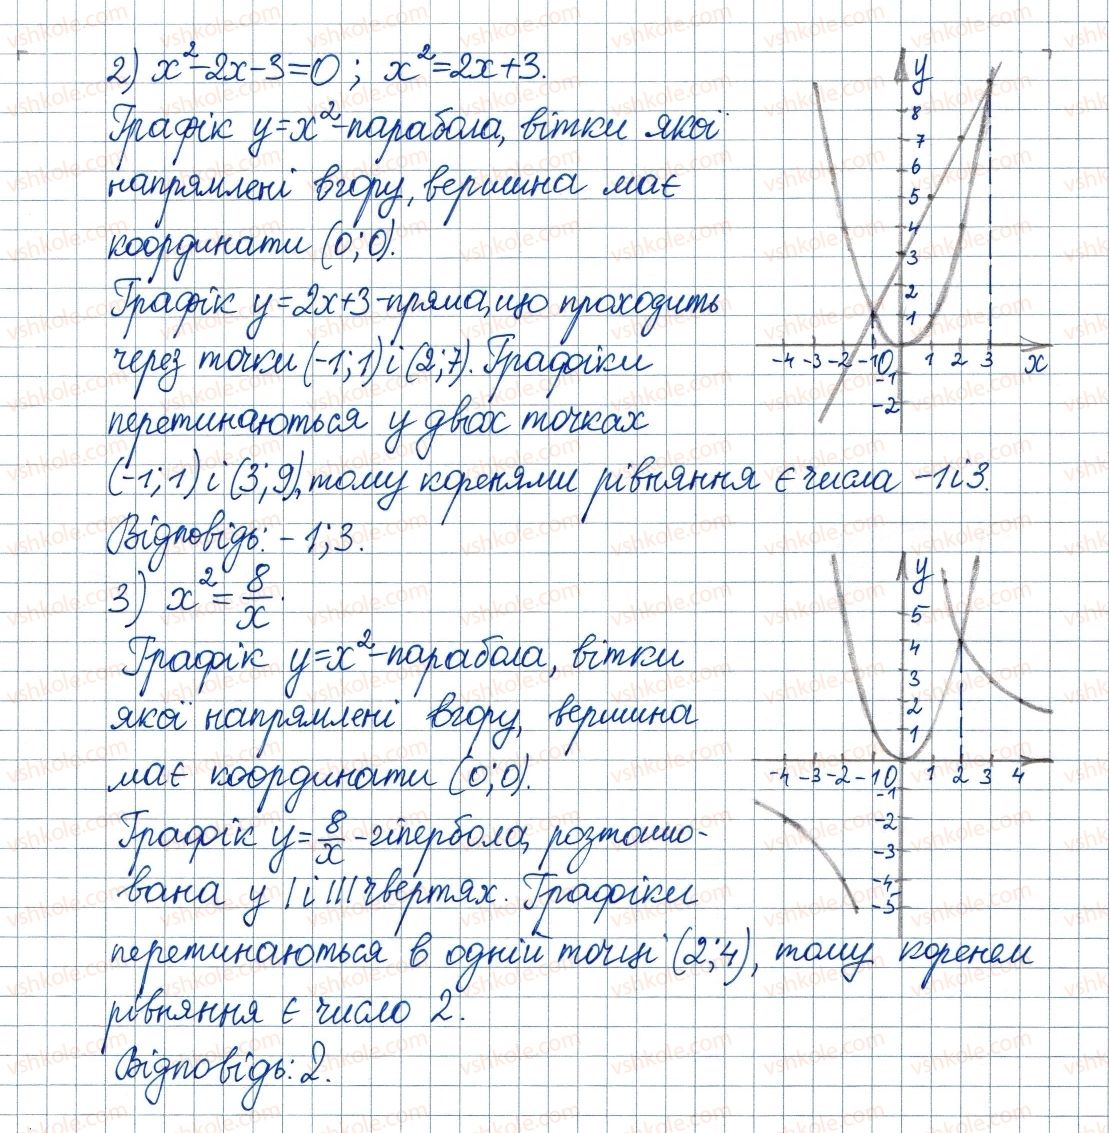 2) x²-2x-3=0; x²=2x+3.
Графік y=x²-парабола, вітки якої
напрямлені вгору, вершина має
координати (0;0).
Графік y=2x+3-пряма, що проходить
через точки (-1;1) і (2;7). Графіки
перетинаються у двох точках
(-1;1) і (3;9), тому коренями рівняння є числа -1 і 3.
Відповідь: -1;3.
y
8
7
6
5
4
3
2
1
-4 -3 -2 -1 0 1 2 3 x
-1
-2
3) x²=8/x.
Графік y=x²-парабола, вітки
якої напрямлені вгору, вершина
має координати (0;0).
Графік y=8/x-гіпербола, розташо-
вана у I і III чвертях. Графіки
перетинаються в одній точці (2;4), тому коренем
рівняння є число 2.
Відповідь: 2.
y
5
4
3
2
1
-4 -3 -2 -1 0 1 2 3 4
-1
-2
-3
-4
-5
vshkole.com